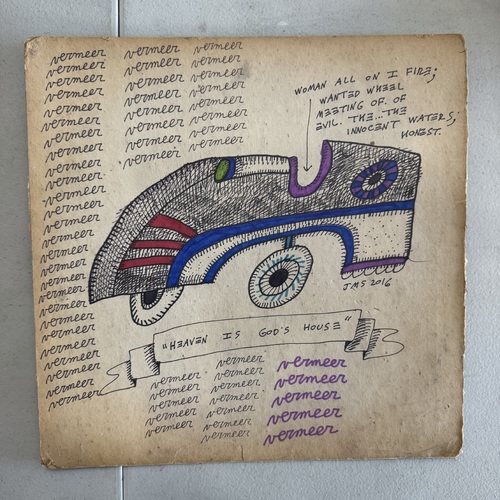 vermeer vermeer vermeer
vermeer vermeer vermeer
vermeer vermeer vermeer
vermeer vermeer vermeer
vermeer vermeer vermeer
vermeer vermeer vermeer
vermeer vermeer vermeer
vermeer vermeer vermeer
vermeer vermeer
vermeer
vermeer
vermeer
vermeer
vermeer
vermeer
vermeer
vermeer
vermeer
vermeer
vermeer
vermeer
vermeer
vermeer
vermeer
vermeer
vermeer
WOMAN ALL ON I FIRE;
WANTED WHEEL
MEETING OF. OF
EVIL. THE...THE
INNOCENT WATERS;
HONEST.
JMS 2016
"HEAVEN IS GOD'S HOUSE"
vermeer
vermeer vermeer vermeer
vermeer vermeer vermeer
vermeer vermeer vermeer
vermeer vermeer vermeer
vermeer vermeer vermeer
vermeer vermeer